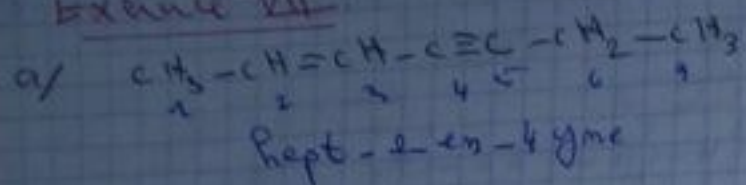 Exercice VII
a/ CH₃-CH=CH-C≡C-CH₂-CH₃
1 2 3 4 5 6 7
hept-2-en-4 yne